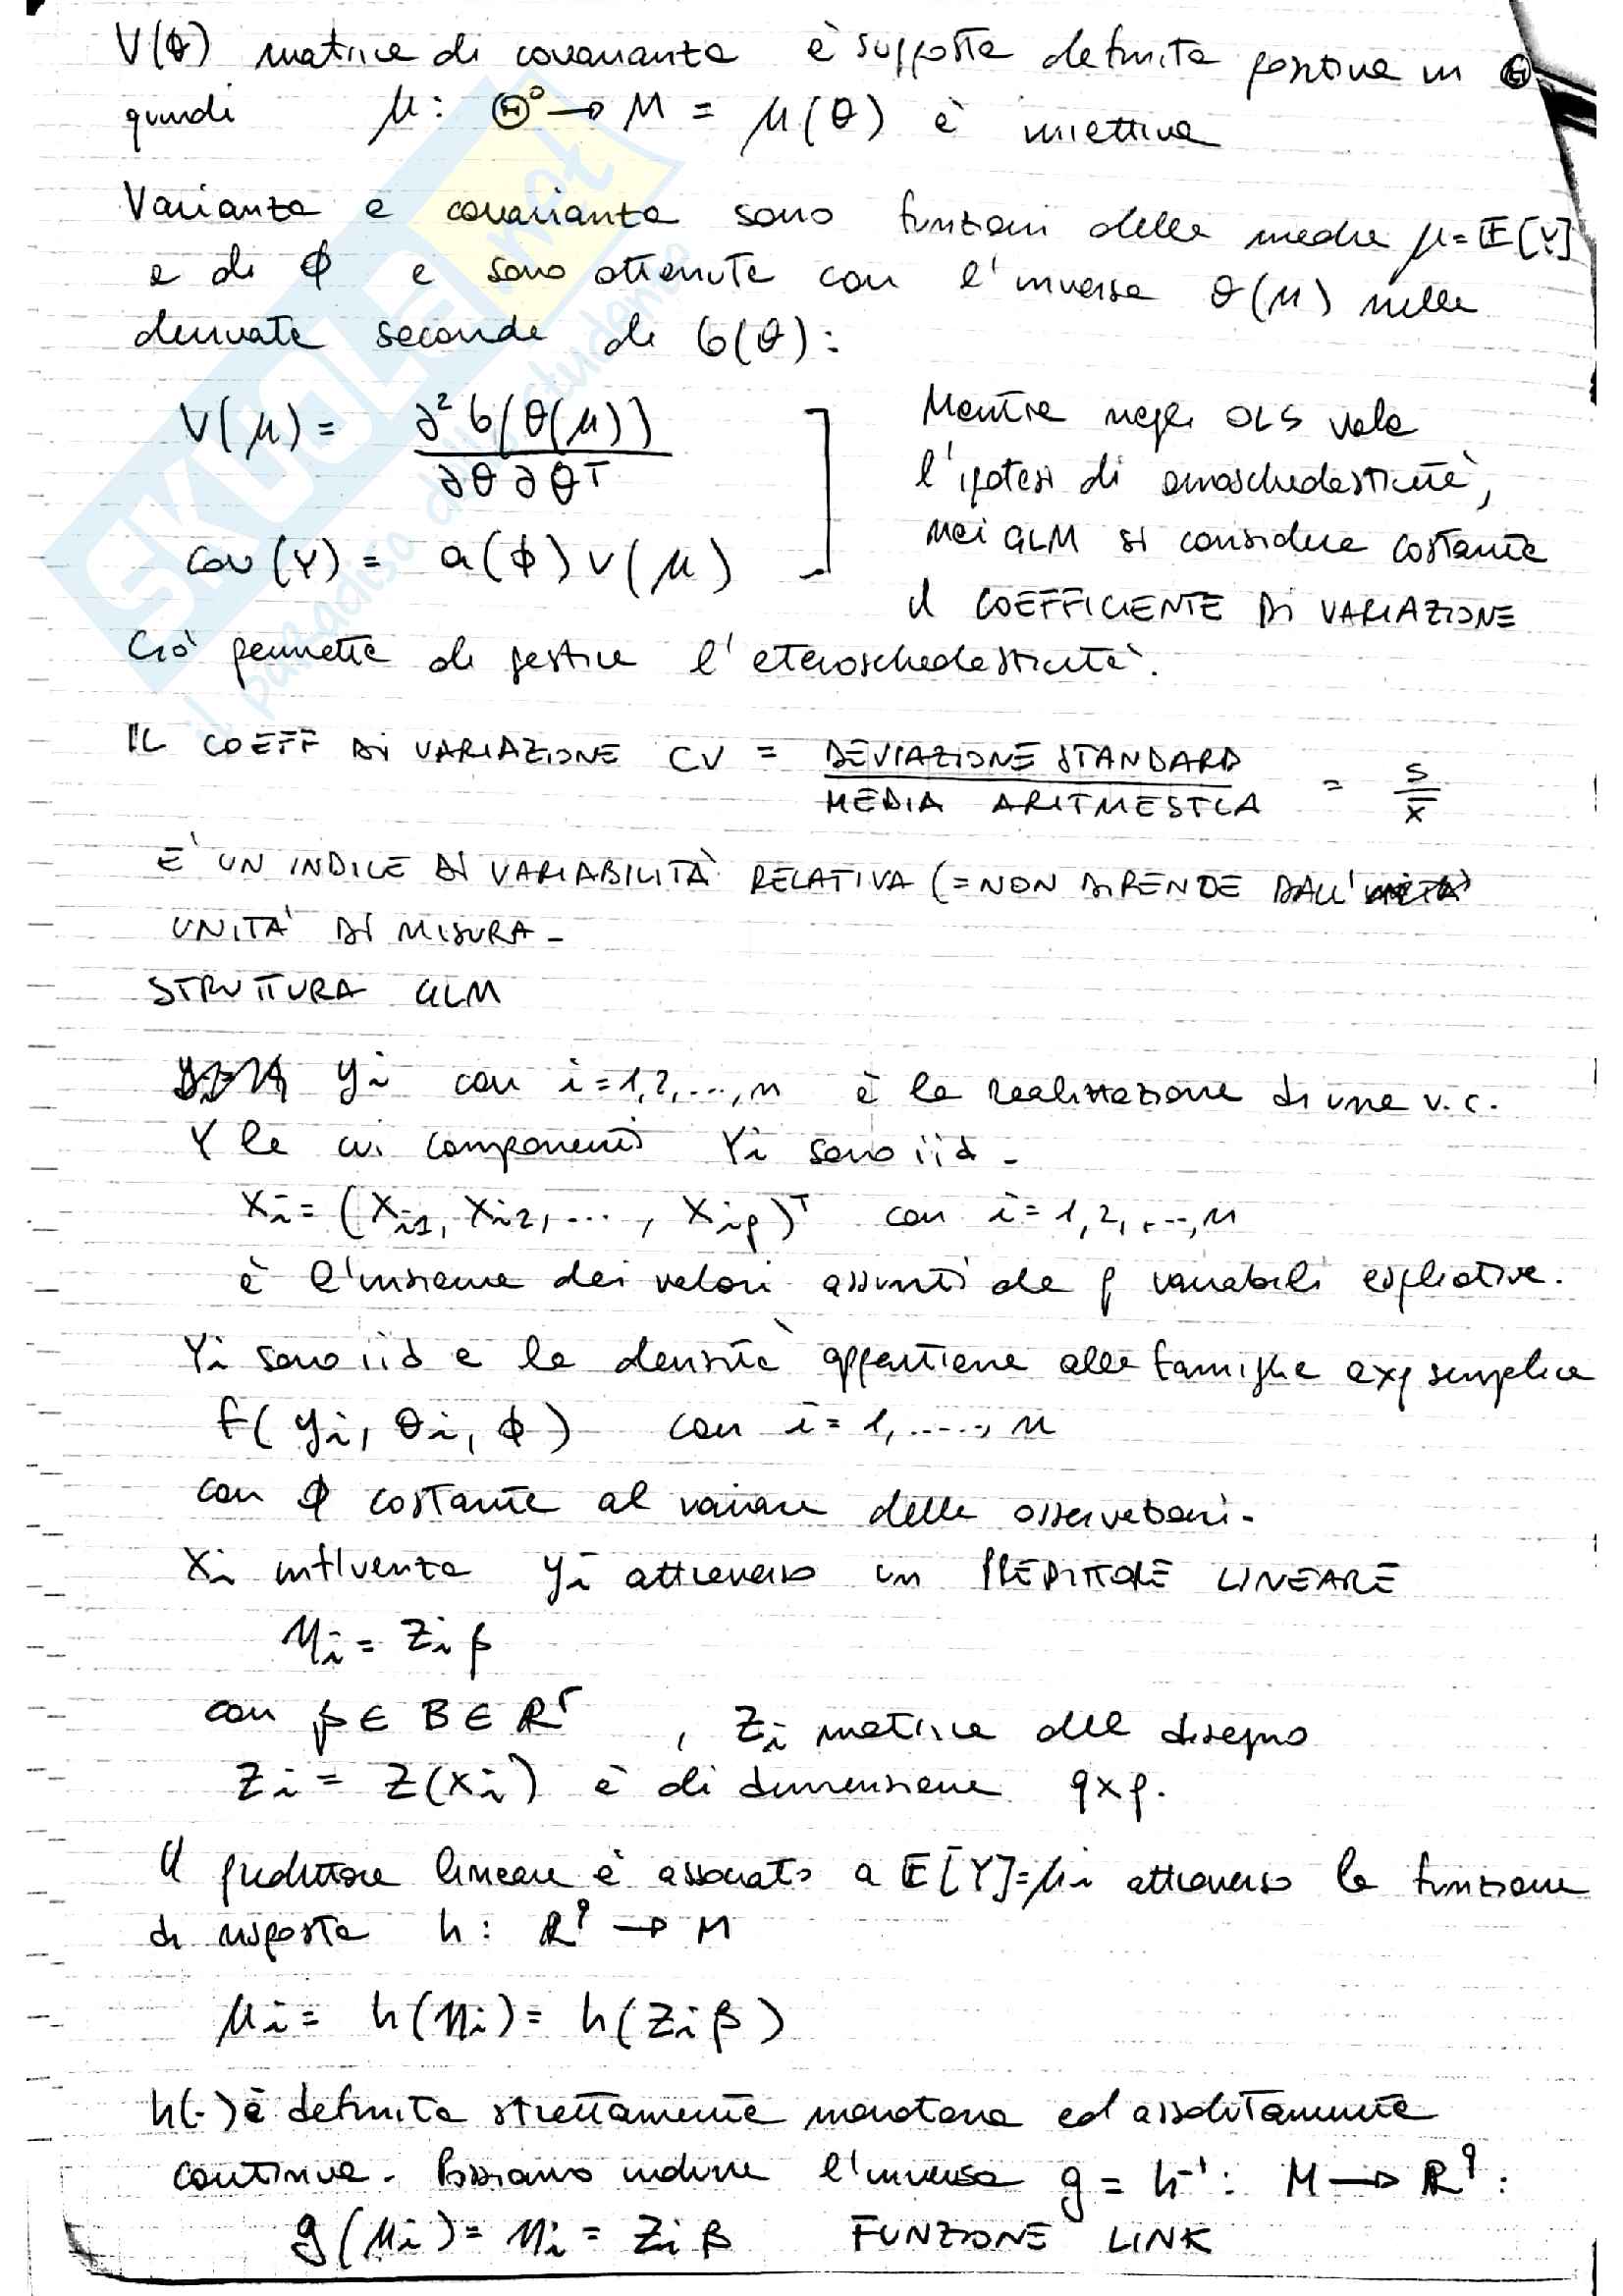 V(θ) matrice di covarianza è supposta definita positiva in Θ
quindi μ: Θ⁰ → M = μ(θ) è iniettiva
Varianza e covarianza sono funzioni della media μ = E[Y]
e di φ e sono ottenute con l'inversa θ(μ) nelle
derivate seconde di b(θ):
V(μ) = ∂²b(θ(μ)) / ∂θ∂θᵀ
Cov(Y) = a(φ) V(μ)
Mentre negli OLS vale
l'ipotesi di omoschedasticità,
nei GLM si considera costante
il COEFFICIENTE DI VARIAZIONE
Ciò permette di gestire l'eteroschedasticità.
IL COEFF DI VARIAZIONE CV = DEVIAZIONE STANDARD / MEDIA ARITMESTCA = s / x̅
E' UN INDICE DI VARIABILITÀ RELATIVA (= NON DIPENDE DALL'
UNITA' DI MISURA -
STRUTTURA GLM
yi con i = 1,2,...,n è la realizzazione di una v.c.
Y le cui componenti Yi sono iid -
Xi = (Xi1, Xi2, ..., Xip)ᵀ con i = 1,2,...,n
è l'insieme dei valori assunti da p variabili esplicative.
Yi sono iid e la densità appartiene alla famiglia exp semplice
f(yi, θi, φ) con i = 1,....., n
con φ costante al variare delle osservazioni -
Xi influenza yi attraverso un PREDITTORE LINEARE
ηi = Zi β
con β ∈ B ∈ ℝʳ , Zi matrice del disegno
Zi = Z(xi) è di dimensione q×p.
Il predittore lineare è associato a E[Y] = μi attraverso la funzione
di risposta h: ℝ^q → M
μi = h(ηi) = h(Zi β)
h(·) è definita strettamente monotona ed assolutamente
continua. Possiamo indurre l'inversa g = h⁻¹: M → ℝ^q :
g(μi) = ηi = Zi β FUNZIONE LINK
SKUOLA.net
il paradiso dello studente